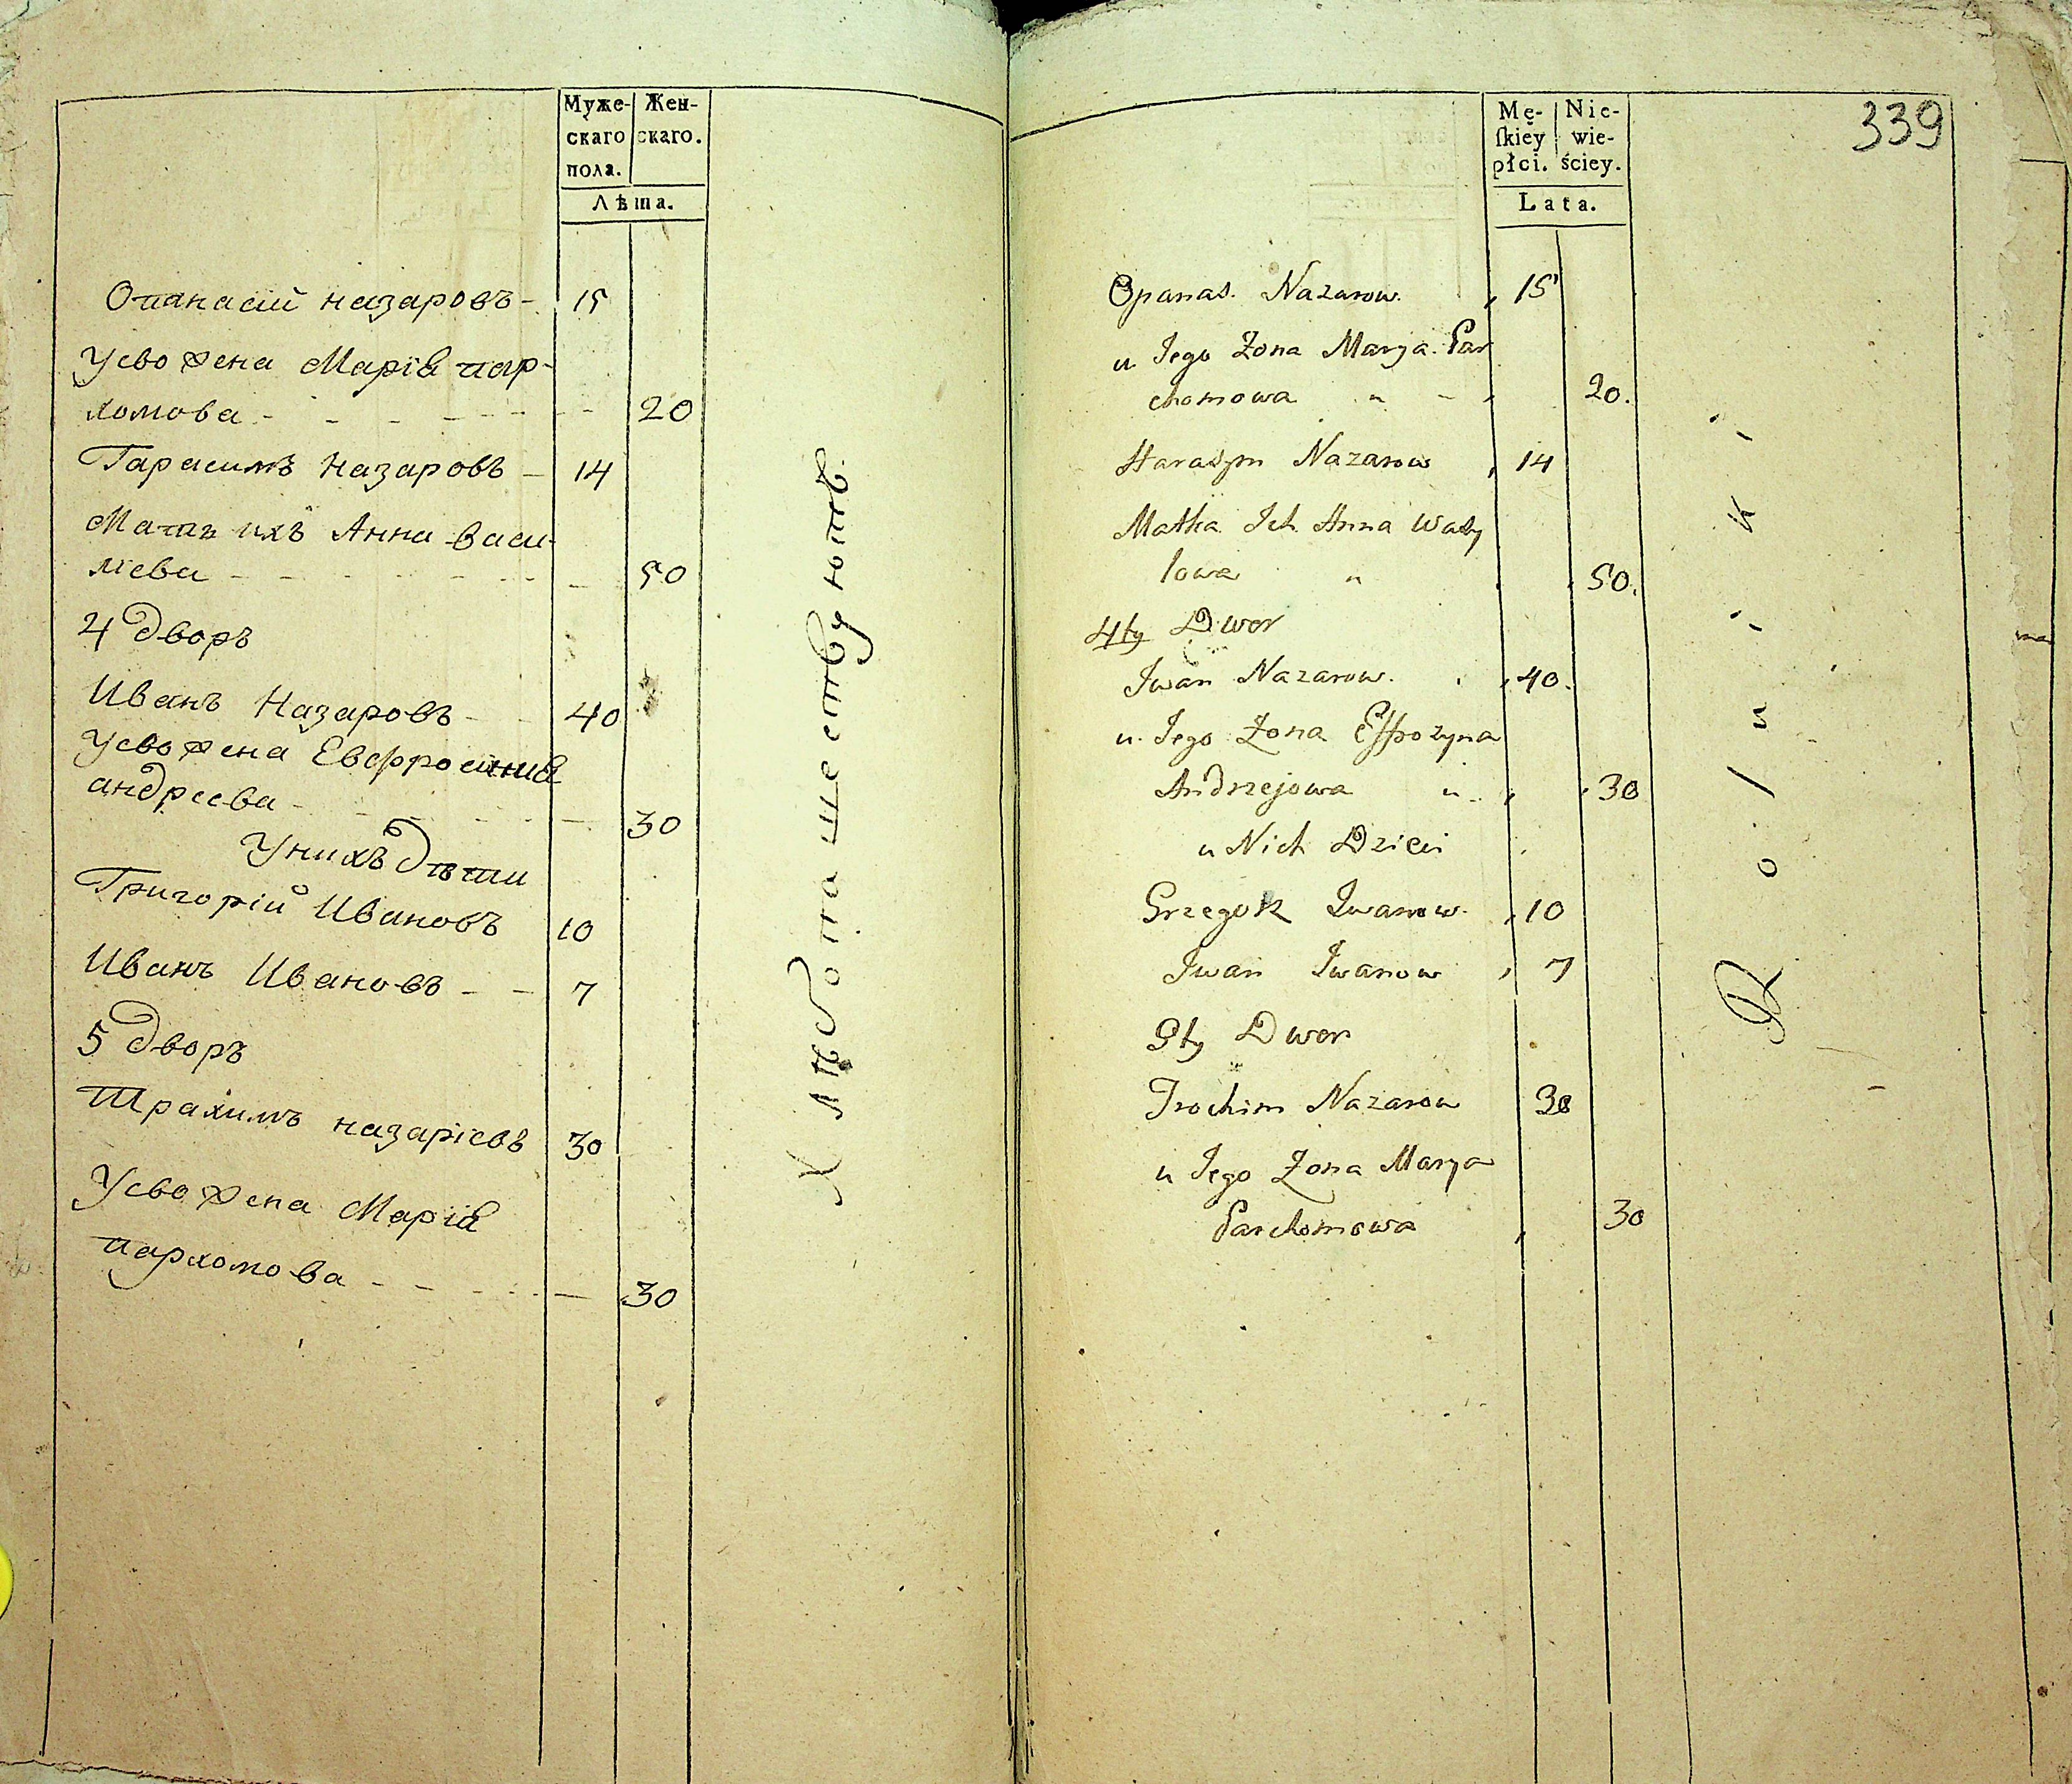 Муже- Жен-
скаго скаго.
пола.
Лѣта.
Опанасій назаровъ - 15
Усво жена Марія пар-
хомова - - - - - - 20
Гарасимъ Назаровъ - 14
Мать ихъ Анна Васи-
лїева - - - - - - 50
4 дворъ
Иванъ Назаровъ - - 40
Усво жена Евфросинія
андреева - - - - - 30
Унихъ дѣти
Григорій Ивановъ 10
Иванъ Ивановъ - - 7
5 дворъ
Трахимъ назаріевъ 30
Усво жена Марія
пархомова - - - - - 30
Хлѣбопашествуютъ.
339
Mę- Nie-
ſkiéy wie-
płci. ściey.
Lata.
Opanas. Nazarow. 15
u Jego Żona Marya. Par
chomowa " - 20.
Harasym Nazarow 14
Matka Ich Anna Wasy
lowa " 50.
4ty Dwor
Iwan Nazarow. 40.
u. Jego Żona Effrozyna
Andrzejowa " 30
u Nich Dzieci
Grzegorz Iwanow. 10
Iwan Iwanow 7
5ty Dwor
Trochim Nazarow 30
u Jego Żona Marya
Parchomowa 30
Rolniki